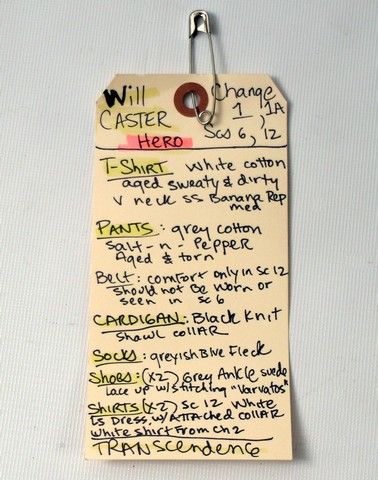 Will Change
CASTER 1, 1A
HERO Scs 6, 12
T-SHIRT white cotton
aged sweaty & dirty
V neck SS Banana Rep
med
PANTS: grey cotton
Salt-n-Pepper
Aged & torn
Belt: comfort only in sc 12
should not be worn or
seen in sc 6
CARDIGAN: Black Knit
shawl collar
SOCKS: greyish Blue Fleck
Shoes: (x2) Grey Ankle suede
lace up w/stitching "Varvatos"
SHIRTS (x2) Sc 12 White
LS Dress, w/Attached collar
white shirt From Ch 2
TRANSCENDENCE